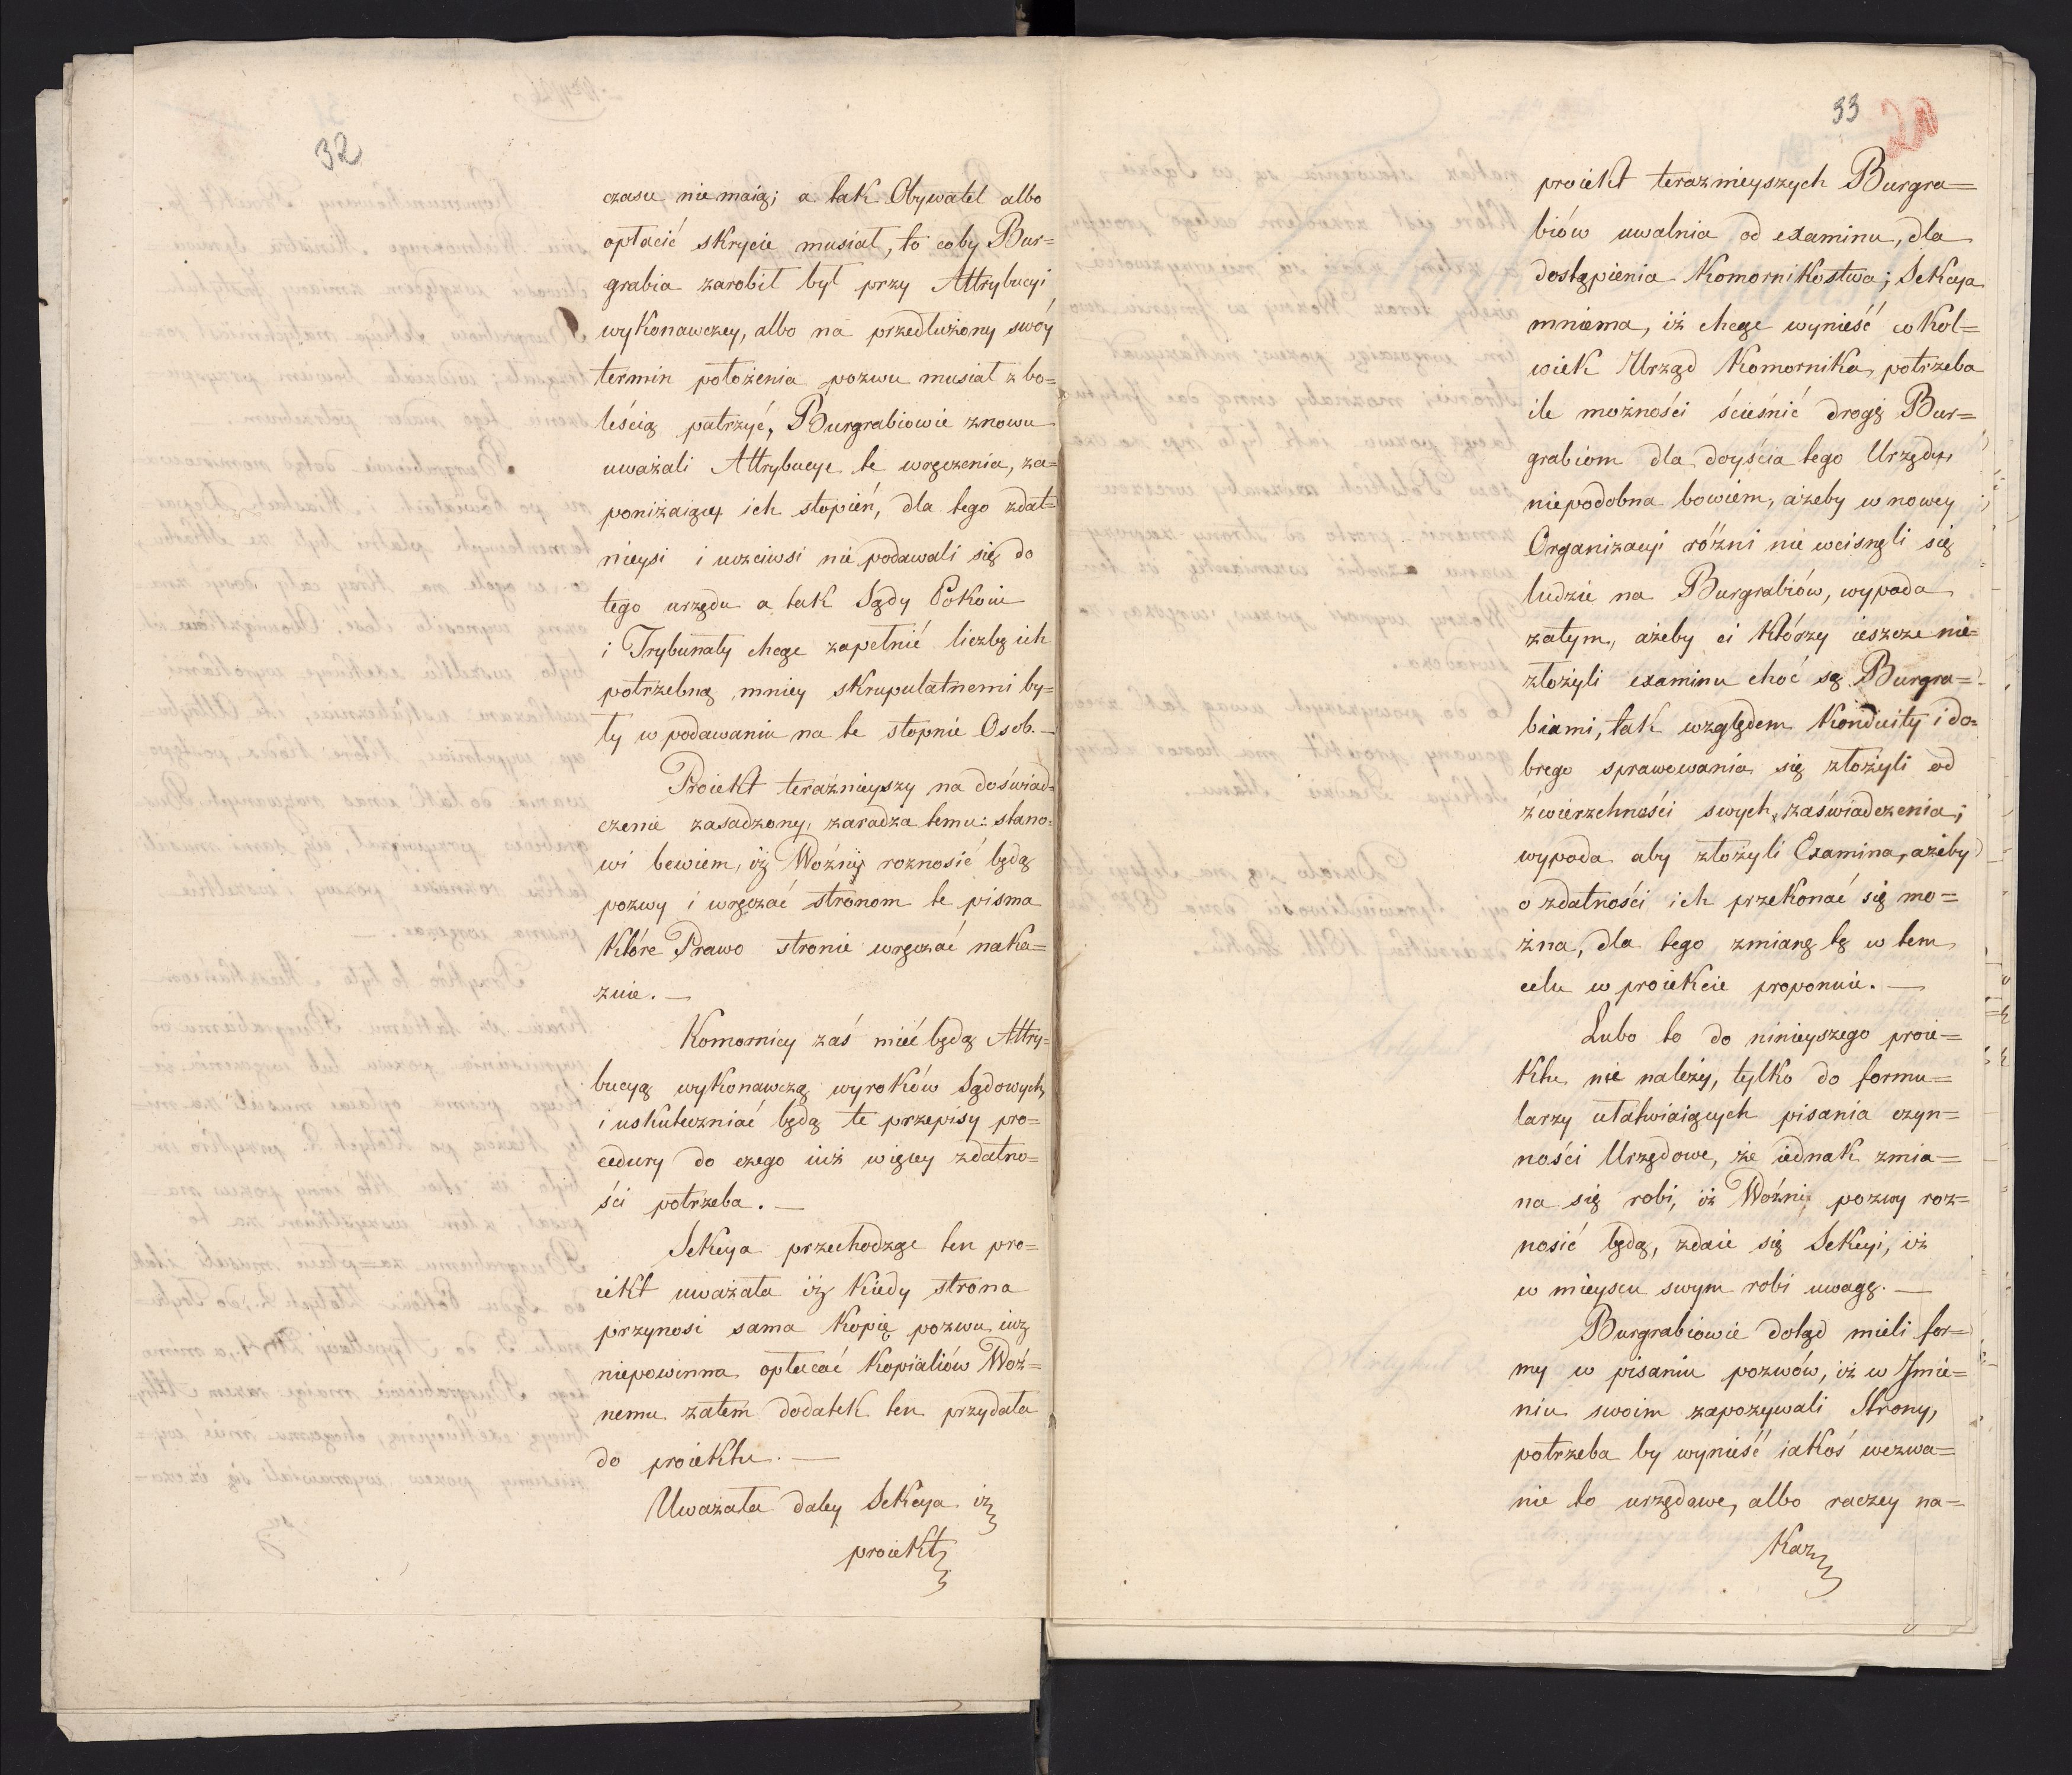 32
czasu nie maią; a tak Obywatel albo
opłacić skrycie musiał, to coby Bur=
grabia zarobił był przy Attrybucyi
wykonawczey, albo na przedłużony swóy
termin położenia pozwu musiał z bo=
leścią patrzyć, Burgrabiowie znowu
uważali Attrybucye te wręczenia, za
poniżaiące ich stopień, dla tego zdat=
nieysi i uczciwsi nie podawali się do
tego urzędu a tak Sądy Pokoiu
i Trybunały chcąc zapełnić liczbę ich
potrzebną mniey skrupulatnemi by=
ły w podawaniu na te stopnie Osob. —
Proiekt teraźnieyszy na doświad=
czenie zasadzony, zaradza temu: stano=
wi bowiem, iż Woźni roznosić będą
pozwy i wręczać stronom te pisma
które Prawo stronie wręczać naka=
zuie. —
Komornicy zaś mieć będą Attry=
bucyą wykonawczą wyroków Sądowych,
i uskuteczniać będą te przepisy pro=
cedury do czego iuż więcey zdatno=
ści potrzeba. —
Sekcya przechodząc ten pro=
iekt uważała iż kiedy strona
przynosi sama kopię pozwu, iuż
niepowinna opłacać kopialiów Woź=
nemu zatem dodatek ten przydała
do proiektu. —
Uważała daley Sekcya iż
proiekt
33
20
proiekt teraznieyszych Burgra=
biów uwalnia od examinu, dla
dostąpienia Komornikostwa; Sekcya
mniema, iż chcąc wynieść cokol=
wiek Urząd Komornika, potrzeba
ile możności ścieśnić drogę Bur=
grabiom dla doyścia tego Urzędu,
niepodobna bowiem, ażeby w nowey
Organizacyi różni nie wcisnęli się
ludzie na Burgrabiów, wypada
zatym, ażeby ci którzy ieszcze nie=
złożyli examinu choć są Burgra=
biami, tak względem Konduity i do=
brego sprawowania się złożyli od
zwierzchności swych zaświadczenia;
wypada aby złożyli Examina, ażeby
o zdatności ich przekonać się mo=
żna, dla tego zmianę tę w tem
celu w proiekcie proponuie. —
Lubo to do ninieyszego proie=
ktu nie należy, tylko do formu=
larzy ułatwiaiących pisania czyn=
ności Urzędowe, że iednak zmia=
na się robi, iż Woźni pozwy roz=
nosić będą, zdaie się Sekcyi, iż
w mieyscu swym robi uwagę. —
Burgrabiowie dotąd mieli for=
my w pisaniu pozwów, iż w Jmie=
niu swoim zapozywali Strony,
potrzeba by wynieść iakoś wezwa=
nie to urzędowe, albo raczey na=
kaz